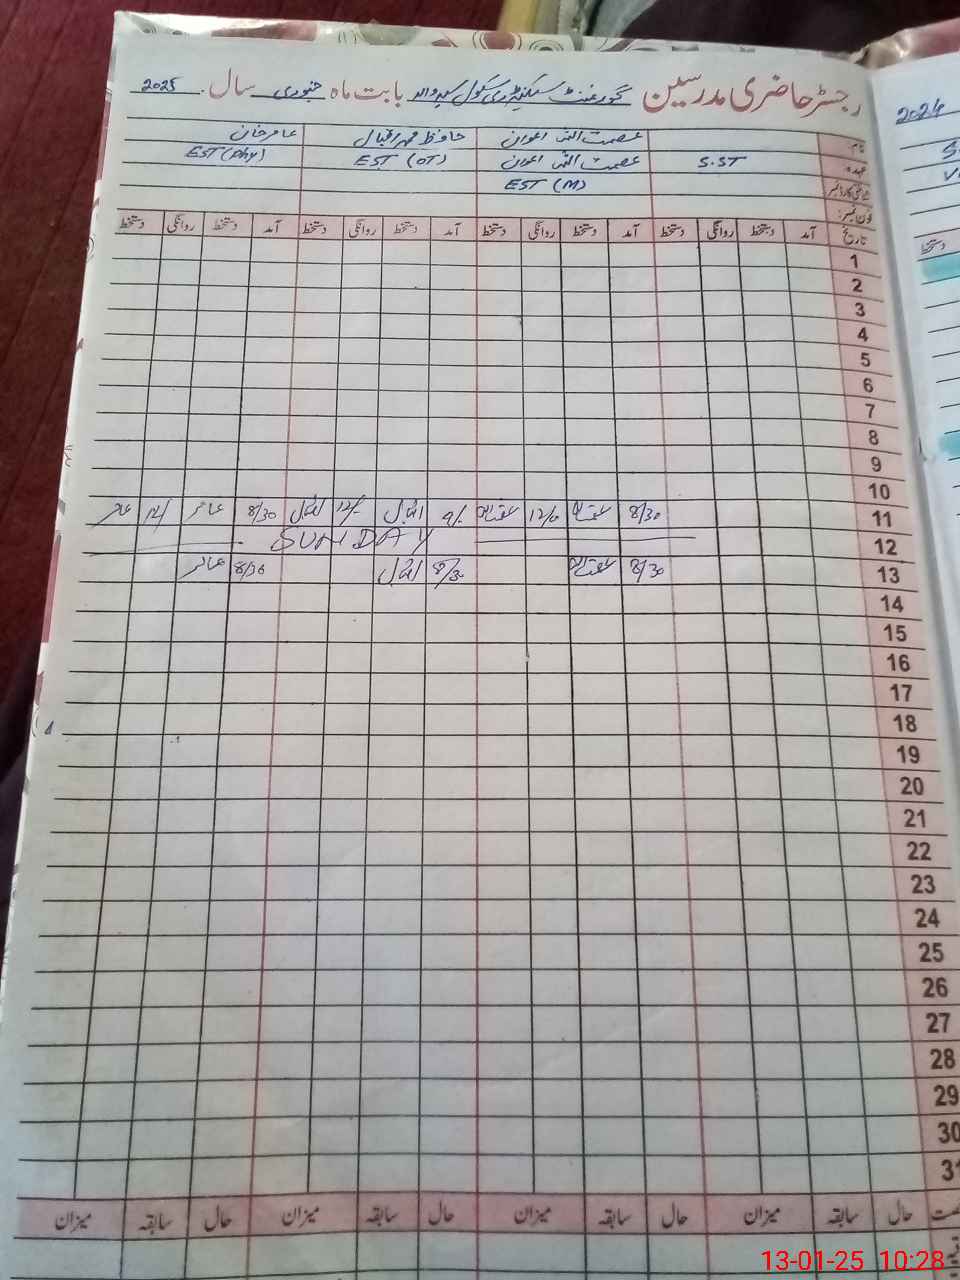 رجسٹر حاضری مدرسین گورنمنٹ سیکنڈری سکول بابت ماہ جنوری سال 2025
نام: عصمت اللہ اعوان حافظ محمد اقبال عامر خان
عہدہ: S.ST عصمت اللہ اعوان EST (OT) EST (Phy)
EST (M)
فون نمبر:
تاریخ آمد دستخط روانگی دستخط آمد دستخط روانگی دستخط آمد دستخط روانگی دستخط آمد دستخط روانگی دستخط
1
2
3
4
5
6
7
8
9
10
11 8/30 12/0 9/- اقبال 12/- اقبال 8/30 عامر 12/ عامر
12 SUNDAY
13 8/30 8/30 اقبال 8/30 عامر
14
15
16
17
18
19
20
21
22
23
24
25
26
27
28
29
30
31
حال سابقہ میزان حال سابقہ میزان حال سابقہ میزان حال سابقہ میزان
2024
دستخط
13-01-25 10:28